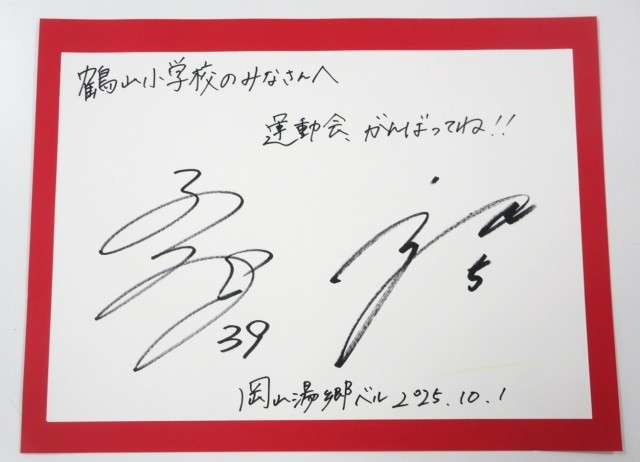 鶴山小学校のみなさんへ
運動会、がんばってね!!
39
5
岡山湯郷ベル 2025.10.1